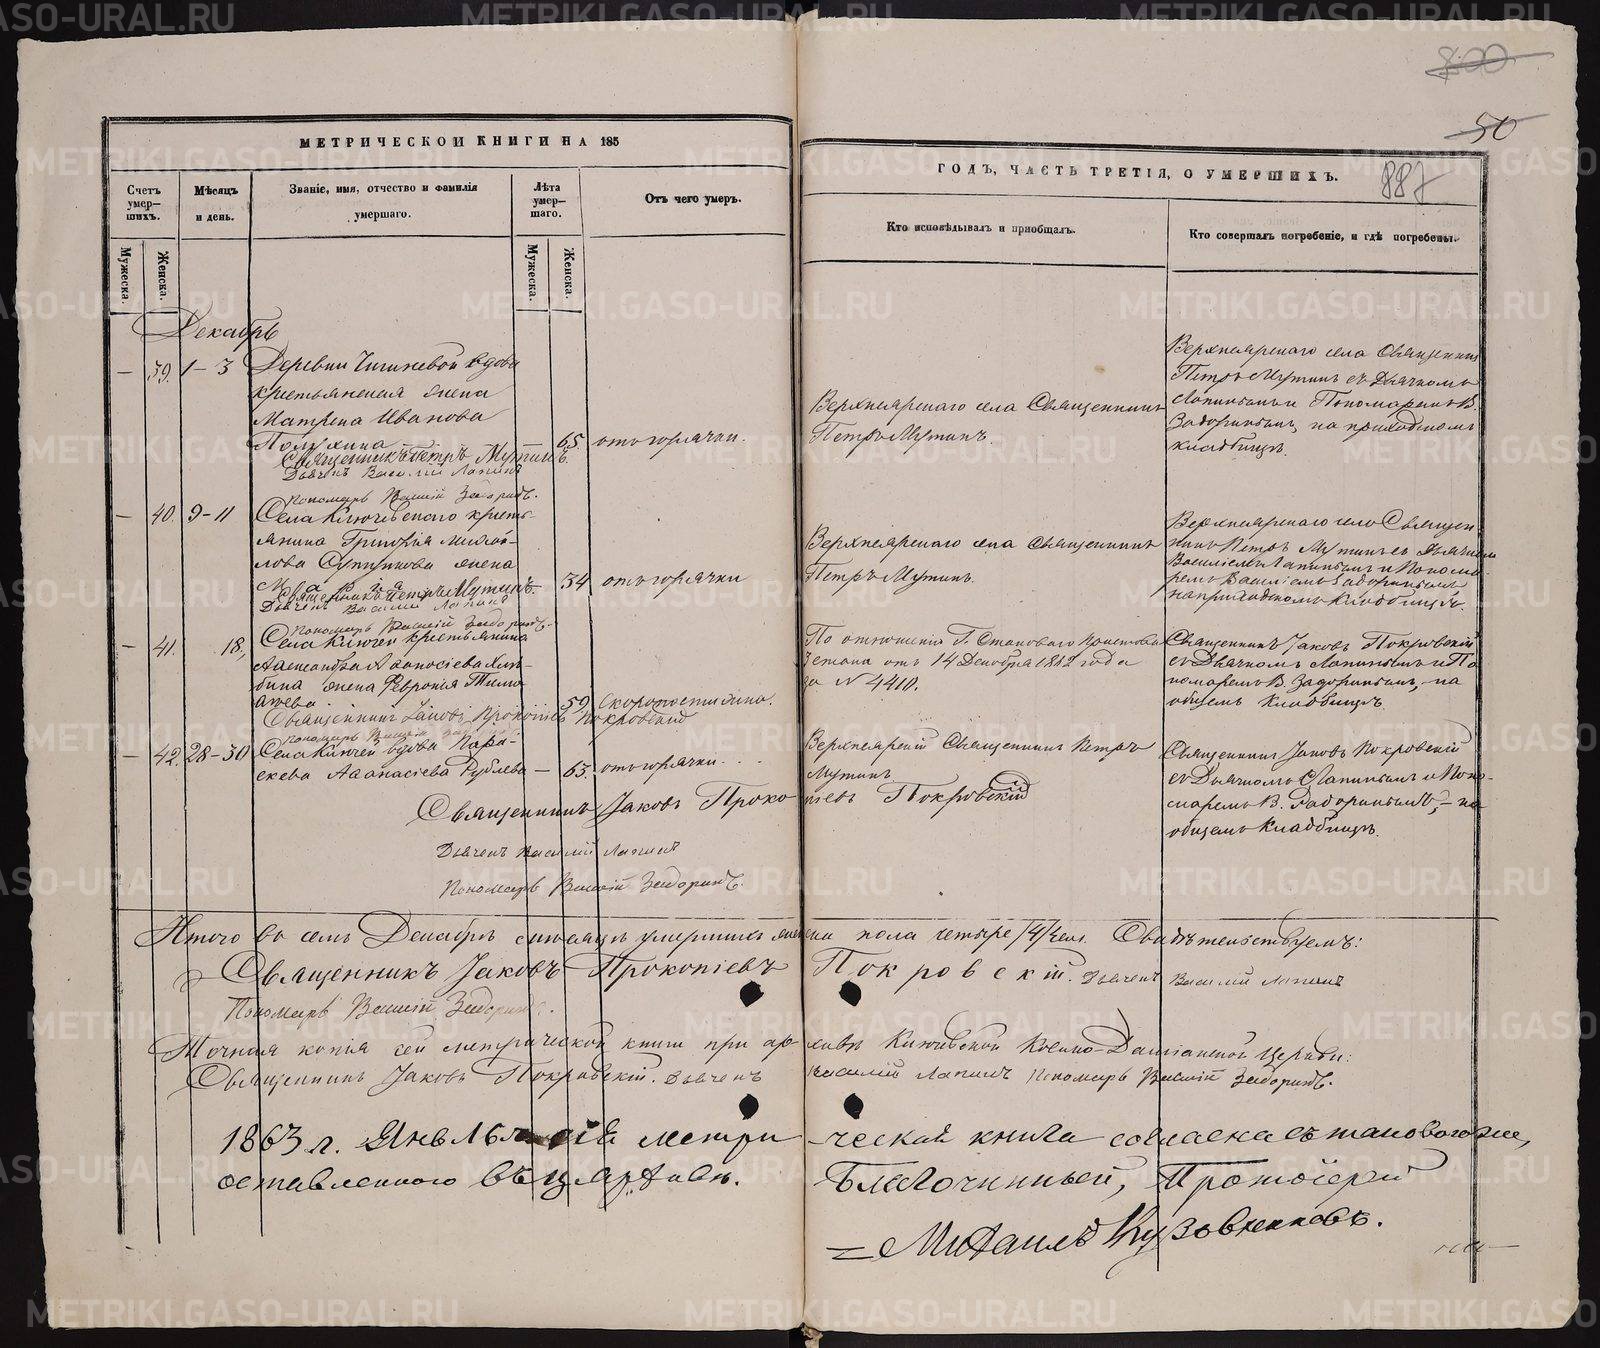 METRIKI.GASO-URAL.RU
800
50
МЕТРИЧЕСКОЙ КНИГИ НА 185
ГОДЪ, ЧАСТЬ ТРЕТІЯ, О УМЕРШИХЪ.
887
Счетъ умер-шихъ.
Мужеска.
Женска.
Мѣсяцъ и день.
Званіе, имя, отчество и фамилія умершаго.
Лѣта умер-шаго.
Мужеска.
Женска.
Отъ чего умеръ.
Кто исповѣдывалъ и пріобщалъ.
Кто совершалъ погребеніе, и гдѣ погребены.
Декабрь
— 39. 1–3 Деревни вдова
крестьянская жена
Матрена Иванова
Полухина — 65. отъ горячки.
Священникъ Петръ Мутинъ.
Дьячекъ Василій Лапинъ
Пономарь Василій Задоринъ.
Верхнеярскаго села Священникъ
Петръ Мутинъ.
Верхнеярскаго села Священникъ
Петръ Мутинъ съ Дьячкомъ
Лапинымъ и Пономаремъ В.
Задоринымъ, на приходскомъ
кладбищѣ.
— 40. 9–11 Села Ключевскаго кресть-
янина Григорія Михай-
лова жена
Марія 34 отъ горячки
Священникъ Петръ Мутинъ.
Дьячекъ Василій Лапинъ
Пономарь Василій Задоринъ.
Верхнеярскаго села Священникъ
Петръ Мутинъ.
Верхнеярскаго села Священ-
никъ Петръ Мутинъ съ Дьячкомъ
Василіемъ Лапинымъ и Понома-
ремъ Василіемъ Задоринымъ
на приходскомъ кладбищѣ.
— 41. 18, Села Ключей крестьянина
Александра Аѳонасіева
жена Февронія Тимо-
59, Скоропостижно.
Священникъ Іаковъ Прокопіевъ Покровскій
Пономарь Василій
По отношенію Г. Становаго Пристава
3 стана отъ 14 Декабря 1862 года
за № 4410.
Священникъ Іаковъ Покровскій
съ Дьячкомъ Лапинымъ и По-
номаремъ В. Задоринымъ, на
общемъ кладбищѣ.
— 42. 28–30 Села Ключей вдова Пара-
скева Аѳанасіева Рублева — 63. отъ горячки.
Верхнеярскій Священникъ Петръ
Мутинъ.
Священникъ Іаковъ Покровскій
съ Дьячкомъ Лапинымъ и Поно-
маремъ В. Задоринымъ, на
общемъ кладбищѣ.
Священникъ Іаковъ Прокопіевъ Покровскій
Дьячекъ Василій Лапинъ
Пономарь Василій Задоринъ.
Итого въ семъ Декабрѣ мѣсяцѣ умершихъ женска пола четыре /4/ чел. Свидѣтельствуемъ:
Священникъ Іаковъ Прокопіевъ Покровскій. Дьячекъ Василій Лапинъ
Пономарь Василій Задоринъ.
Точная копія сей метрической книги при архивѣ Ключевской Космо-Даміанской Церкви:
Священникъ Іаковъ Покровскій. Дьячекъ Василій Лапинъ Пономарь Василій Задоринъ.
1863 г. Января сія метрическая книга согласна съ таковою же,
оставленною въ ц. архивѣ. Благочинный, Протоіерей
Михаилъ Кузовниковъ.